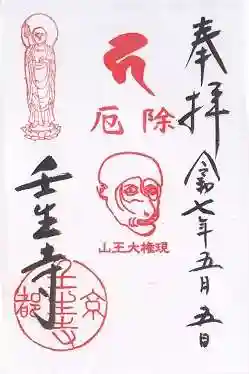 奉拝
令和七年五月五日
厄除
山王大権現
壬生寺
京都
壬生寺